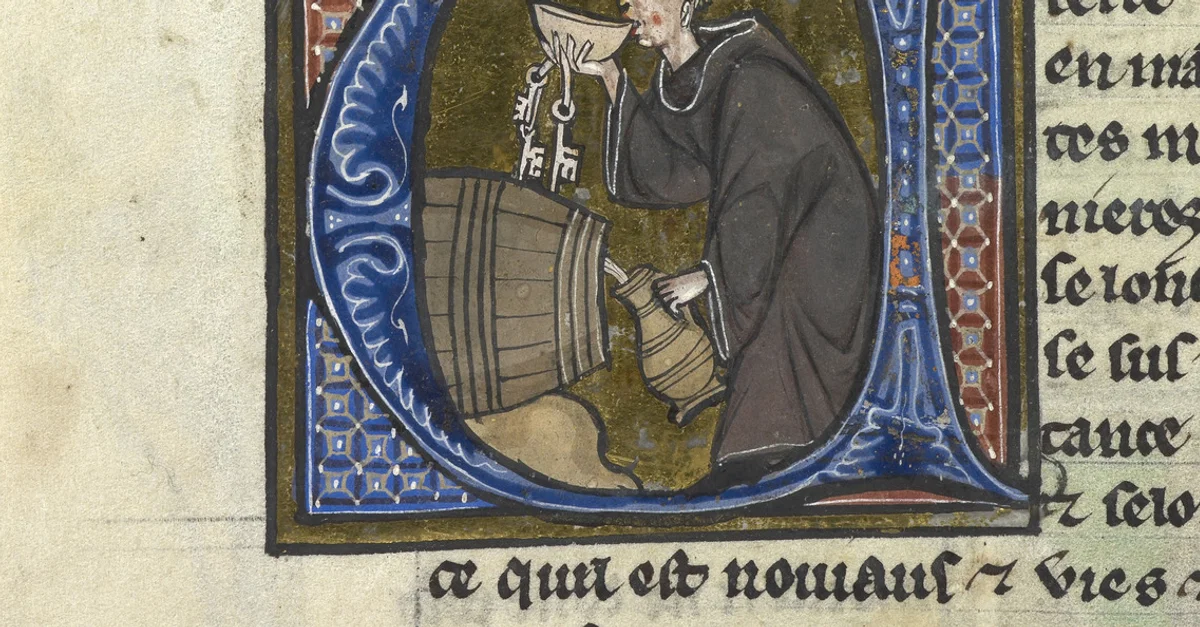 en ma
tes m
nieres
selonc
se sus
tance
⁊ selo
ce quil est nouiaus ⁊ vies